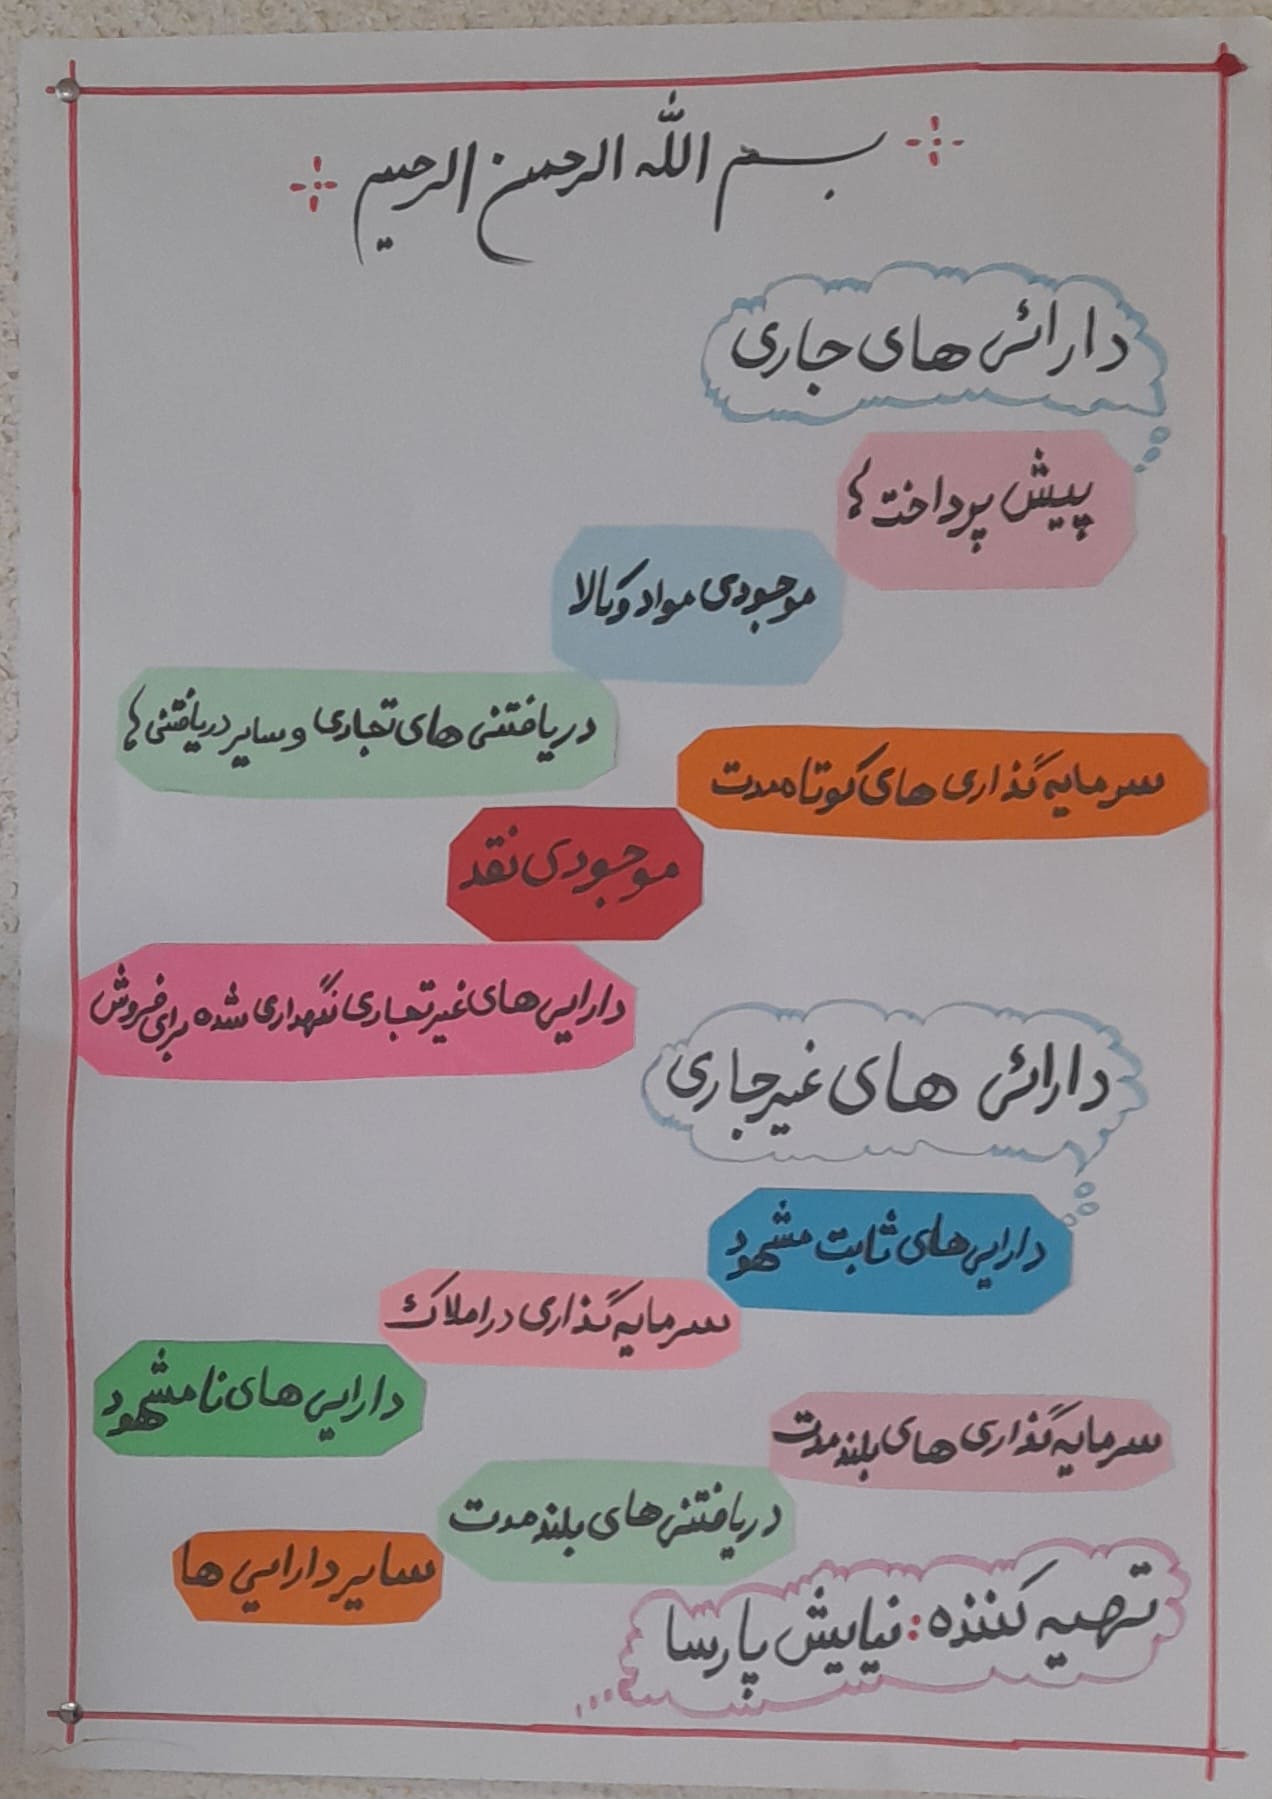 بسم الله الرحمن الرحیم
دارائی های جاری
پیش پرداخت ها
موجودی مواد و کالا
دریافتنی های تجاری و سایر دریافتنی ها
سرمایه گذاری های کوتاه مدت
موجودی نقد
دارایی های غیر تجاری نگهداری شده برای فروش
دارائی های غیر جاری
دارایی های ثابت مشهود
سرمایه گذاری در املاک
دارایی های نامشهود
سرمایه گذاری های بلند مدت
دریافتنی های بلند مدت
سایر دارایی ها
تهیه کننده: نیایش پارسا